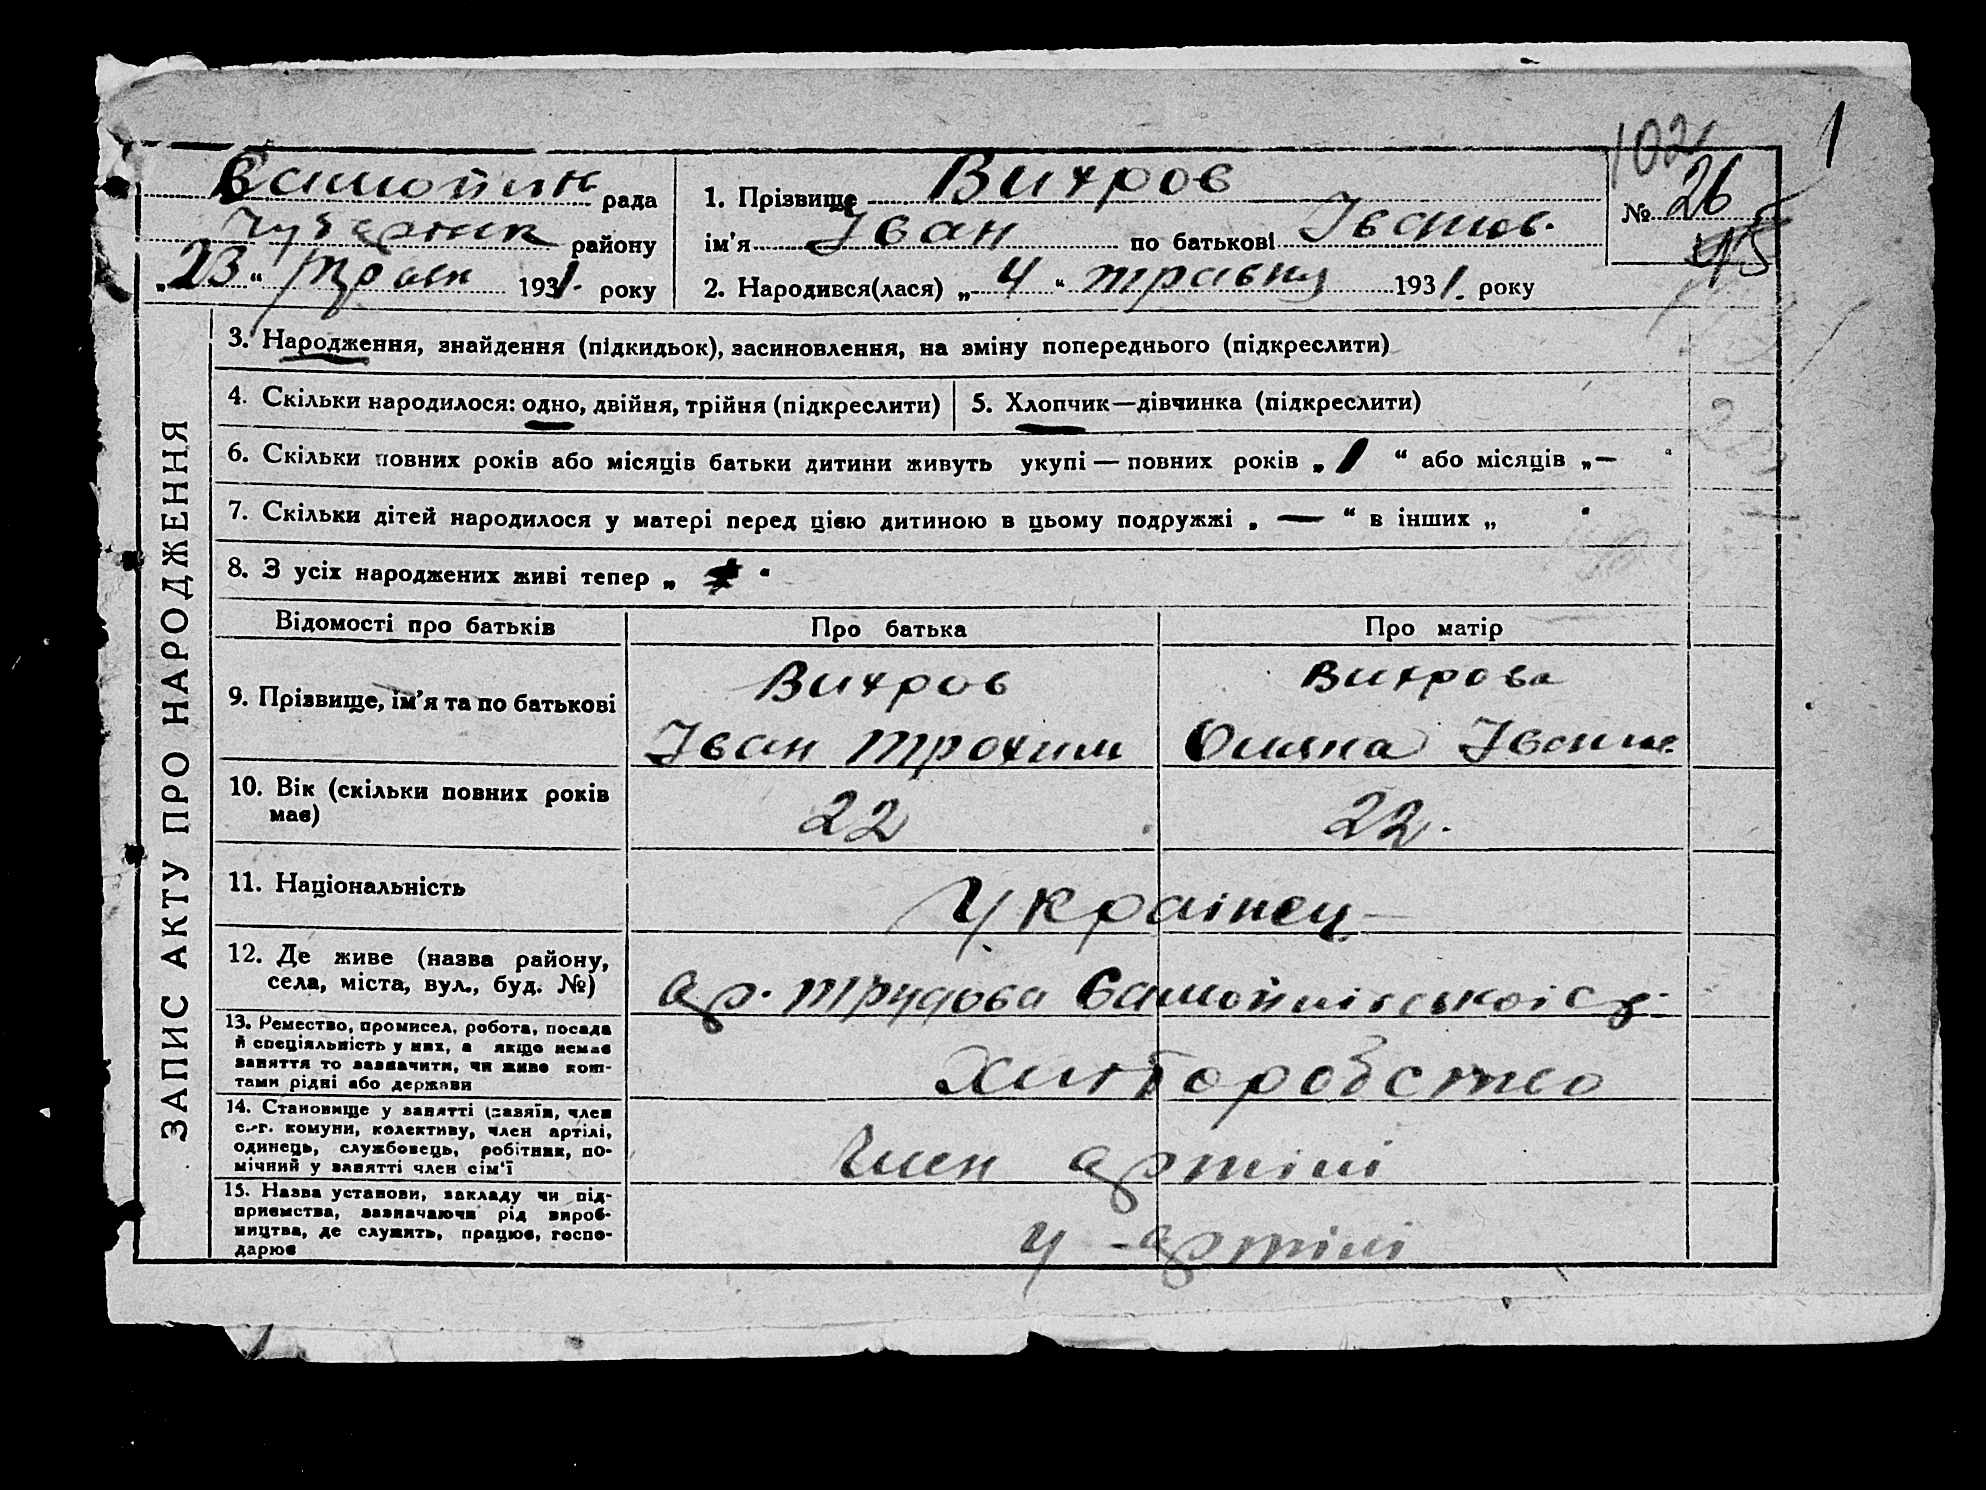 102
1
Самойлик рада
Чубарик району
„23“ травн 1931. року
1. Прізвище Вихров
ім'я Іван по батькові Іванов.
2. Народився(лася) „4“ травня 1931. року
№ 26
45
ЗАПИС АКТУ ПРО НАРОДЖЕННЯ
3. Народження, знайдення (підкидьок), засиновлення, на зміну попереднього (підкреслити)
4. Скільки народилося: одно, двійня, трійня (підкреслити)
5. Хлопчик—дівчинка (підкреслити)
6. Скільки повних років або місяців батьки дитини живуть укупі — повних років „1“ або місяців „—“
7. Скільки дітей народилося у матері перед цією дитиною в цьому подружжі „—“ в інших „ “
8. З усіх народжених живі тепер „ “
Відомості про батьків
Про батька
Про матір
9. Прізвище, ім'я та по батькові
Вихров
Іван Трохим
Вихрова
Іваном.
10. Вік (скільки повних років
має)
22
22.
11. Національність
Українец
12. Де живе (назва району,
села, міста, вул., буд. №)
ар. Трудова Самойлівської с р.
13. Ремество, промисел, робота, посада
й спеціяльність у них, а якщо немає
заняття то зазначити, чи живе кош-
тами рідні або держави
Хліборобство
14. Становище у занятті (хазяїн, член
с.-г. комуни, колективу, член артілі,
одинець, службовець, робітник, по-
мічний у занятті член сім'ї
Член артілі
15. Назва установи, закладу чи під-
приємства, зазначаючи рід вироб-
ництва, де служить, працює, госпо-
дарює
у артілі